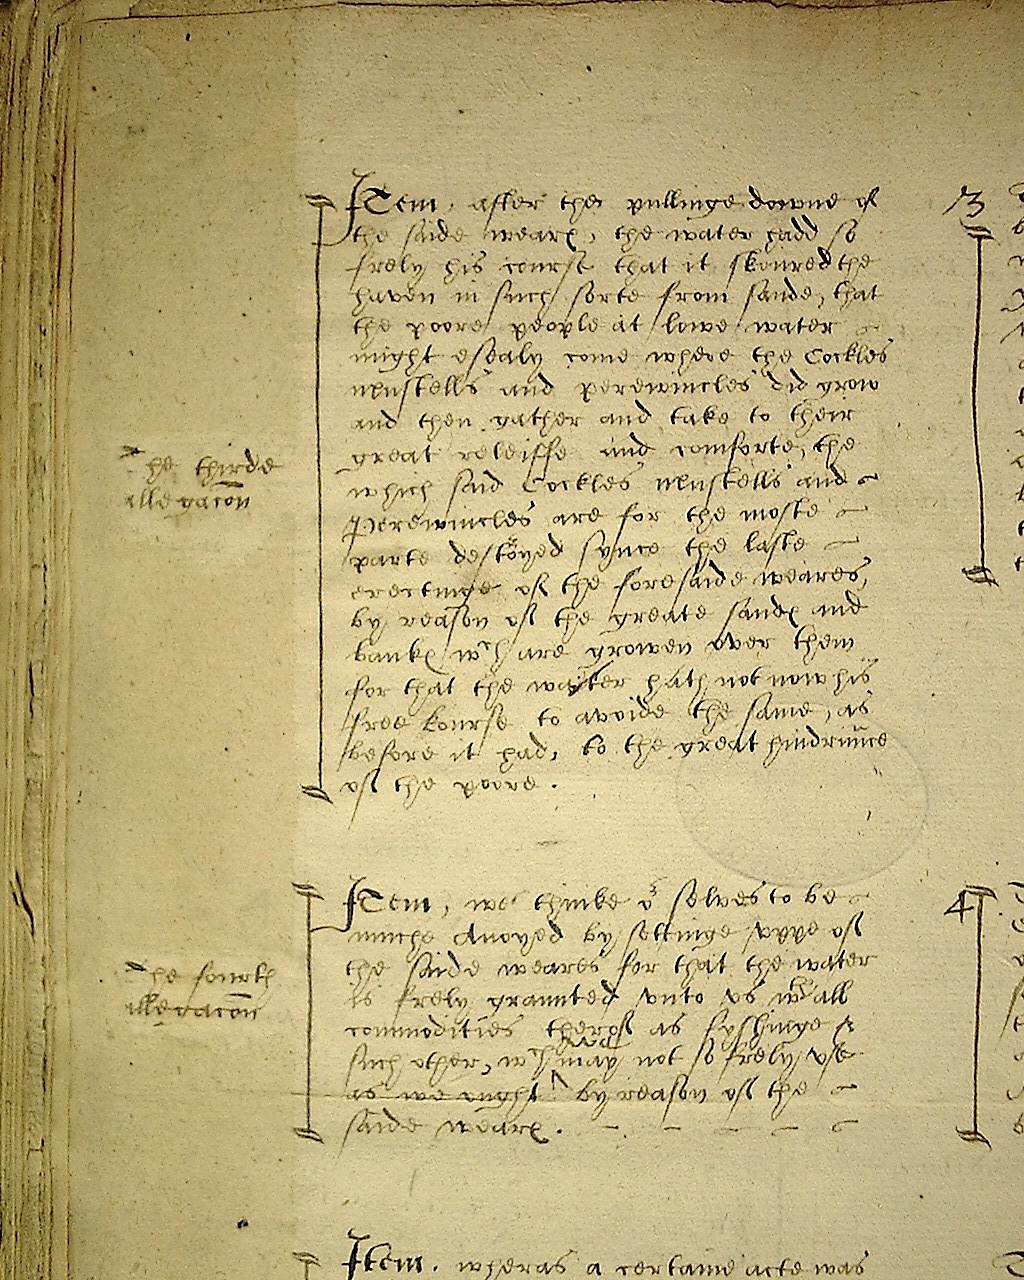 Item, after the pullinge downe of
the saide weares, the water hadd so
frely his course that it skoured the
haven in such sorte from sande, that
the poore people at lowe water
might esealy come where the Cockles
muskells and perewincles did grow
and then gather and take to their
great releiffe and comforte, the
which said Cockles muskells and
Perewincles are for the moste
parte destroyed synce the laste
erectinge of the foresaide weares,
by reason of the greate sandes and
bankes wch are growen over them
for that the water hath not now his
free kourse to avoide the same, as
before it had, to the great hindrance
of the poore.
The thirde
allegacon
Item, we thinke or selves to be
muche Anoyed by settinge uppe of
the saide weares for that the water
is frely graunted unto us wth all
commodities therof as fyshinge &
such other, wch we may not so frely use
as we ought by reason of the
saide weares.
The fourth
allegacon
Item. wheras a certaine acte was
3
4